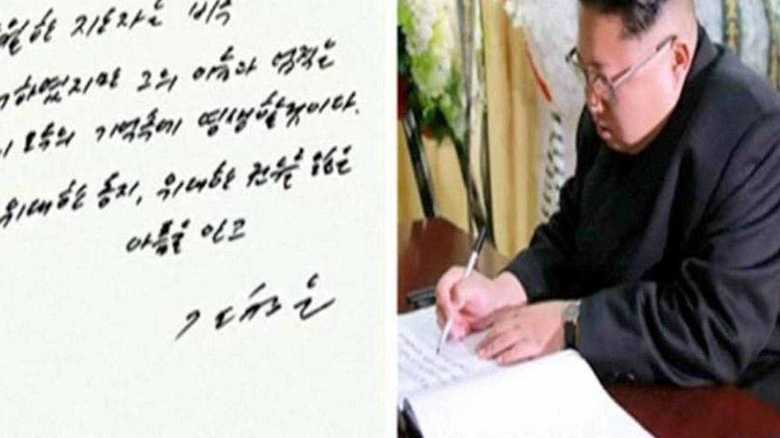 월한 지도자는 비록
하였지만 그의 이름과 업적은
모두의 기억속에 영생할것이다.
위대한 동지, 위대한 전우를 잃은
아픔을 안고
김정은